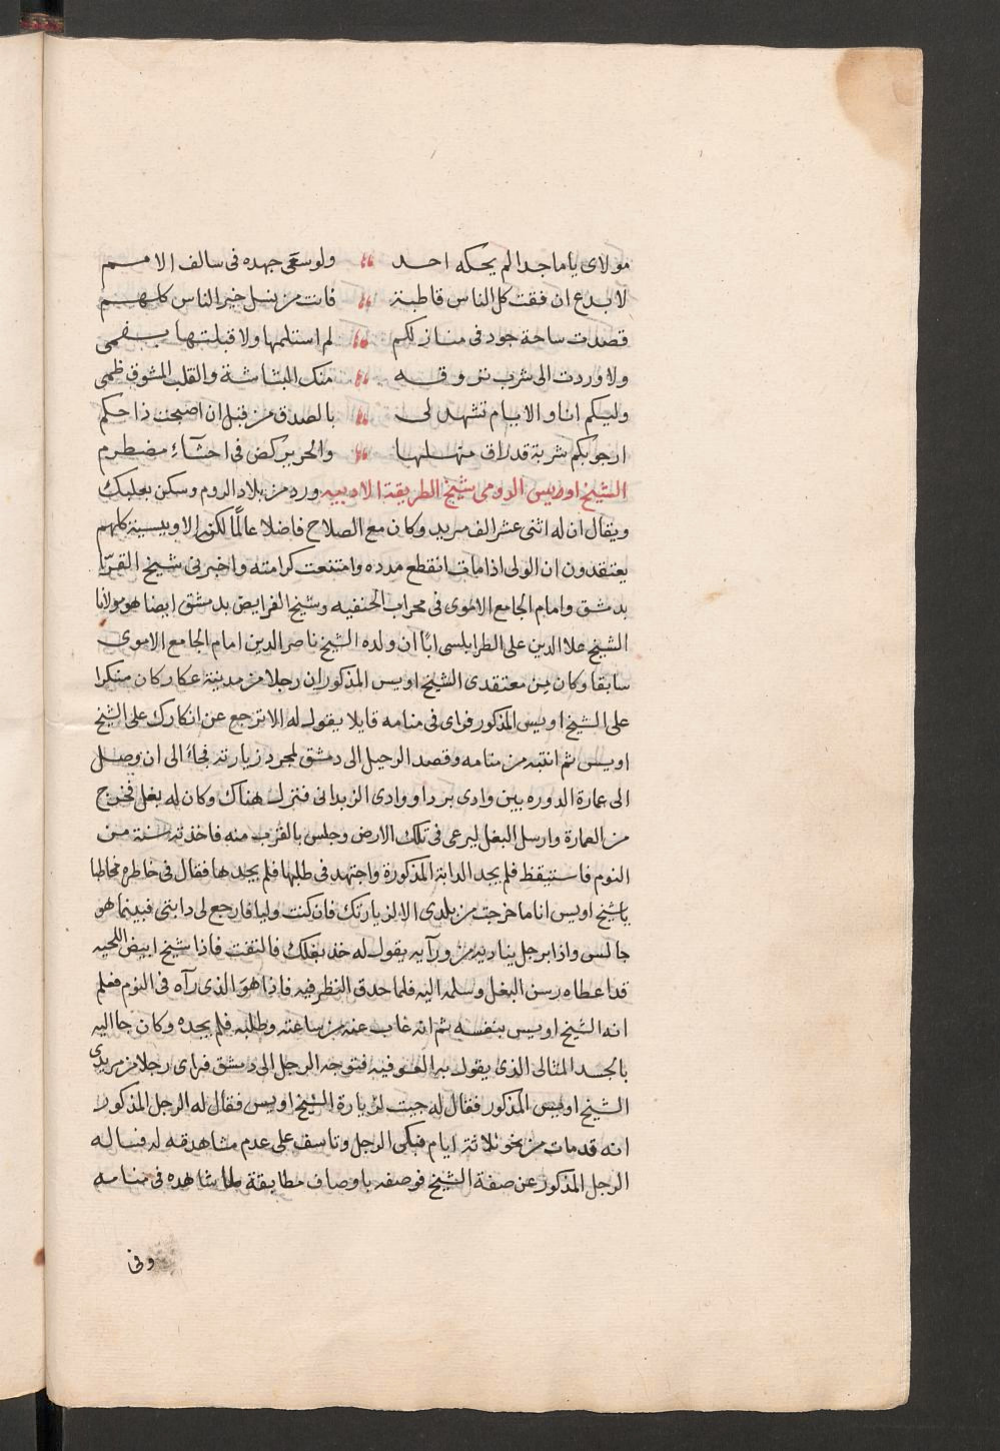 مولاى ياماجدا لم يحكه احد ولو سعى جهده فى سالف الامم
لا بدع ان فقت كل الناس قاطبة فانت من نسل خير الناس كلهم
قصدت ساحة جود فى منازلكم لم استلمها ولا قبلتها بفمى
ولا وردت الى شرب تروقه منك البشاشة والقلب المشوق ظمى
وليكم انا والايام تشهد لى بالصدق من قبل ان اصبحت ذا حكم
ارجو بكم شربة قد راق منهلها والحر يركض فى احشاء مضطرم
الشيخ اويس الرومى شيخ الطريقة ورد من بلاد الروم وسكن بعلبك
ويقال ان له اثنى عشر الف مريد وكان مع الصلاح فاضلا عالمًا لكن الاويسية كلهم
يعتقدون ان الولى اذا مات انقطع مدده وامتنعت كرامته واخبرنى شيخ القرّا
بدمشق وامام الجامع الاموى فى محراب الحنفيه وشيخ الفرايض بدمشق ايضا هو مولانا
الشيخ علا الدين على الطرابلسى ان ولده الشيخ ناصر الدين امام الجامع الاموى
سابقا وكان من معتقدى الشيخ اويس المذكور ان رجلا من مدينة عكار كان منكرا
على الشيخ اويس المذكور فراى فى منامه قايلا يقول له الا ترجع عن انكارك على الشيخ
اويس ثم انتبه من منامه وقصد الرحيل الى دمشق لمجرد زيارته فجاء الى ان وصل
الى عمارة الدوره بين وادى بردا ووادى الزبدانى فنزل هناك وكان له بغل فخرج
من العمارة وارسل البغل ليرعى فى تلك الارض وجلس بالقرب منه فاخذته سنة من
النوم فاستيقظ فلم يجد الدابة المذكورة واجتهد فى طلبها فلم يجدها فقال فى خاطره مخاطبا
يا شيخ اويس انا ما خرجت من بلدى الا لزيارتك فان كنت وليا فارجع لى دابتى فبينما هو
جالس واذا برجل يناديه من ورآيه يقول له خذ بغلك فالتفت فاذا شيخ ابيض اللحيه
قد اعطاه رسن البغل وسلمه اليه فلما حدق النظر فيه فاذا هو الذى رآه فى النوم فعلم
انه الشيخ اويس بنفسه ثم انه غاب عنه من ساعته وطلبه فلم يجده وكان جا اليه
بالجسد المثالى الذى يقول به الصوفيه فتوجه الرجل الى دمشق فراى رجلا من مريدى
الشيخ اويس المذكور فقال له جيت لزيارة الشيخ اويس فقال له الرجل المذكور
انه قد مات من نحو ثلاثة ايام فبكى الرجل وتاسف على عدم مشاهدته له فساله
الرجل المذكور عن صفة الشيخ فوصفه باوصاف مطابقة لما شاهده فى منامه
وفى